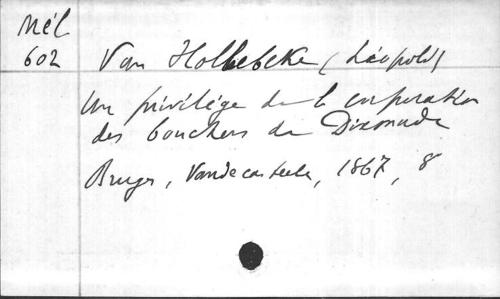 Mél
602
Van Hollebeke (Léopold)
Un privilége de la corporation
des bouchers de Dixmude
Bruges, Vandecasteele, 1867, 8